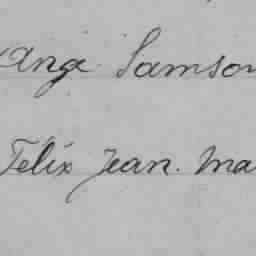 Ange Samson
Félix Jean. Ma